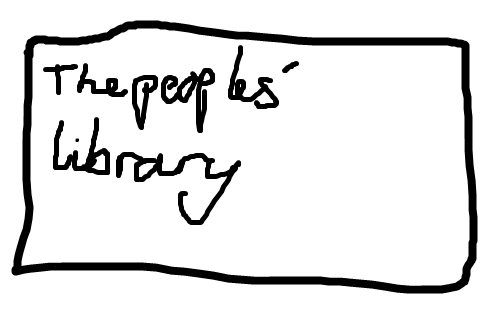 The peoples'
library